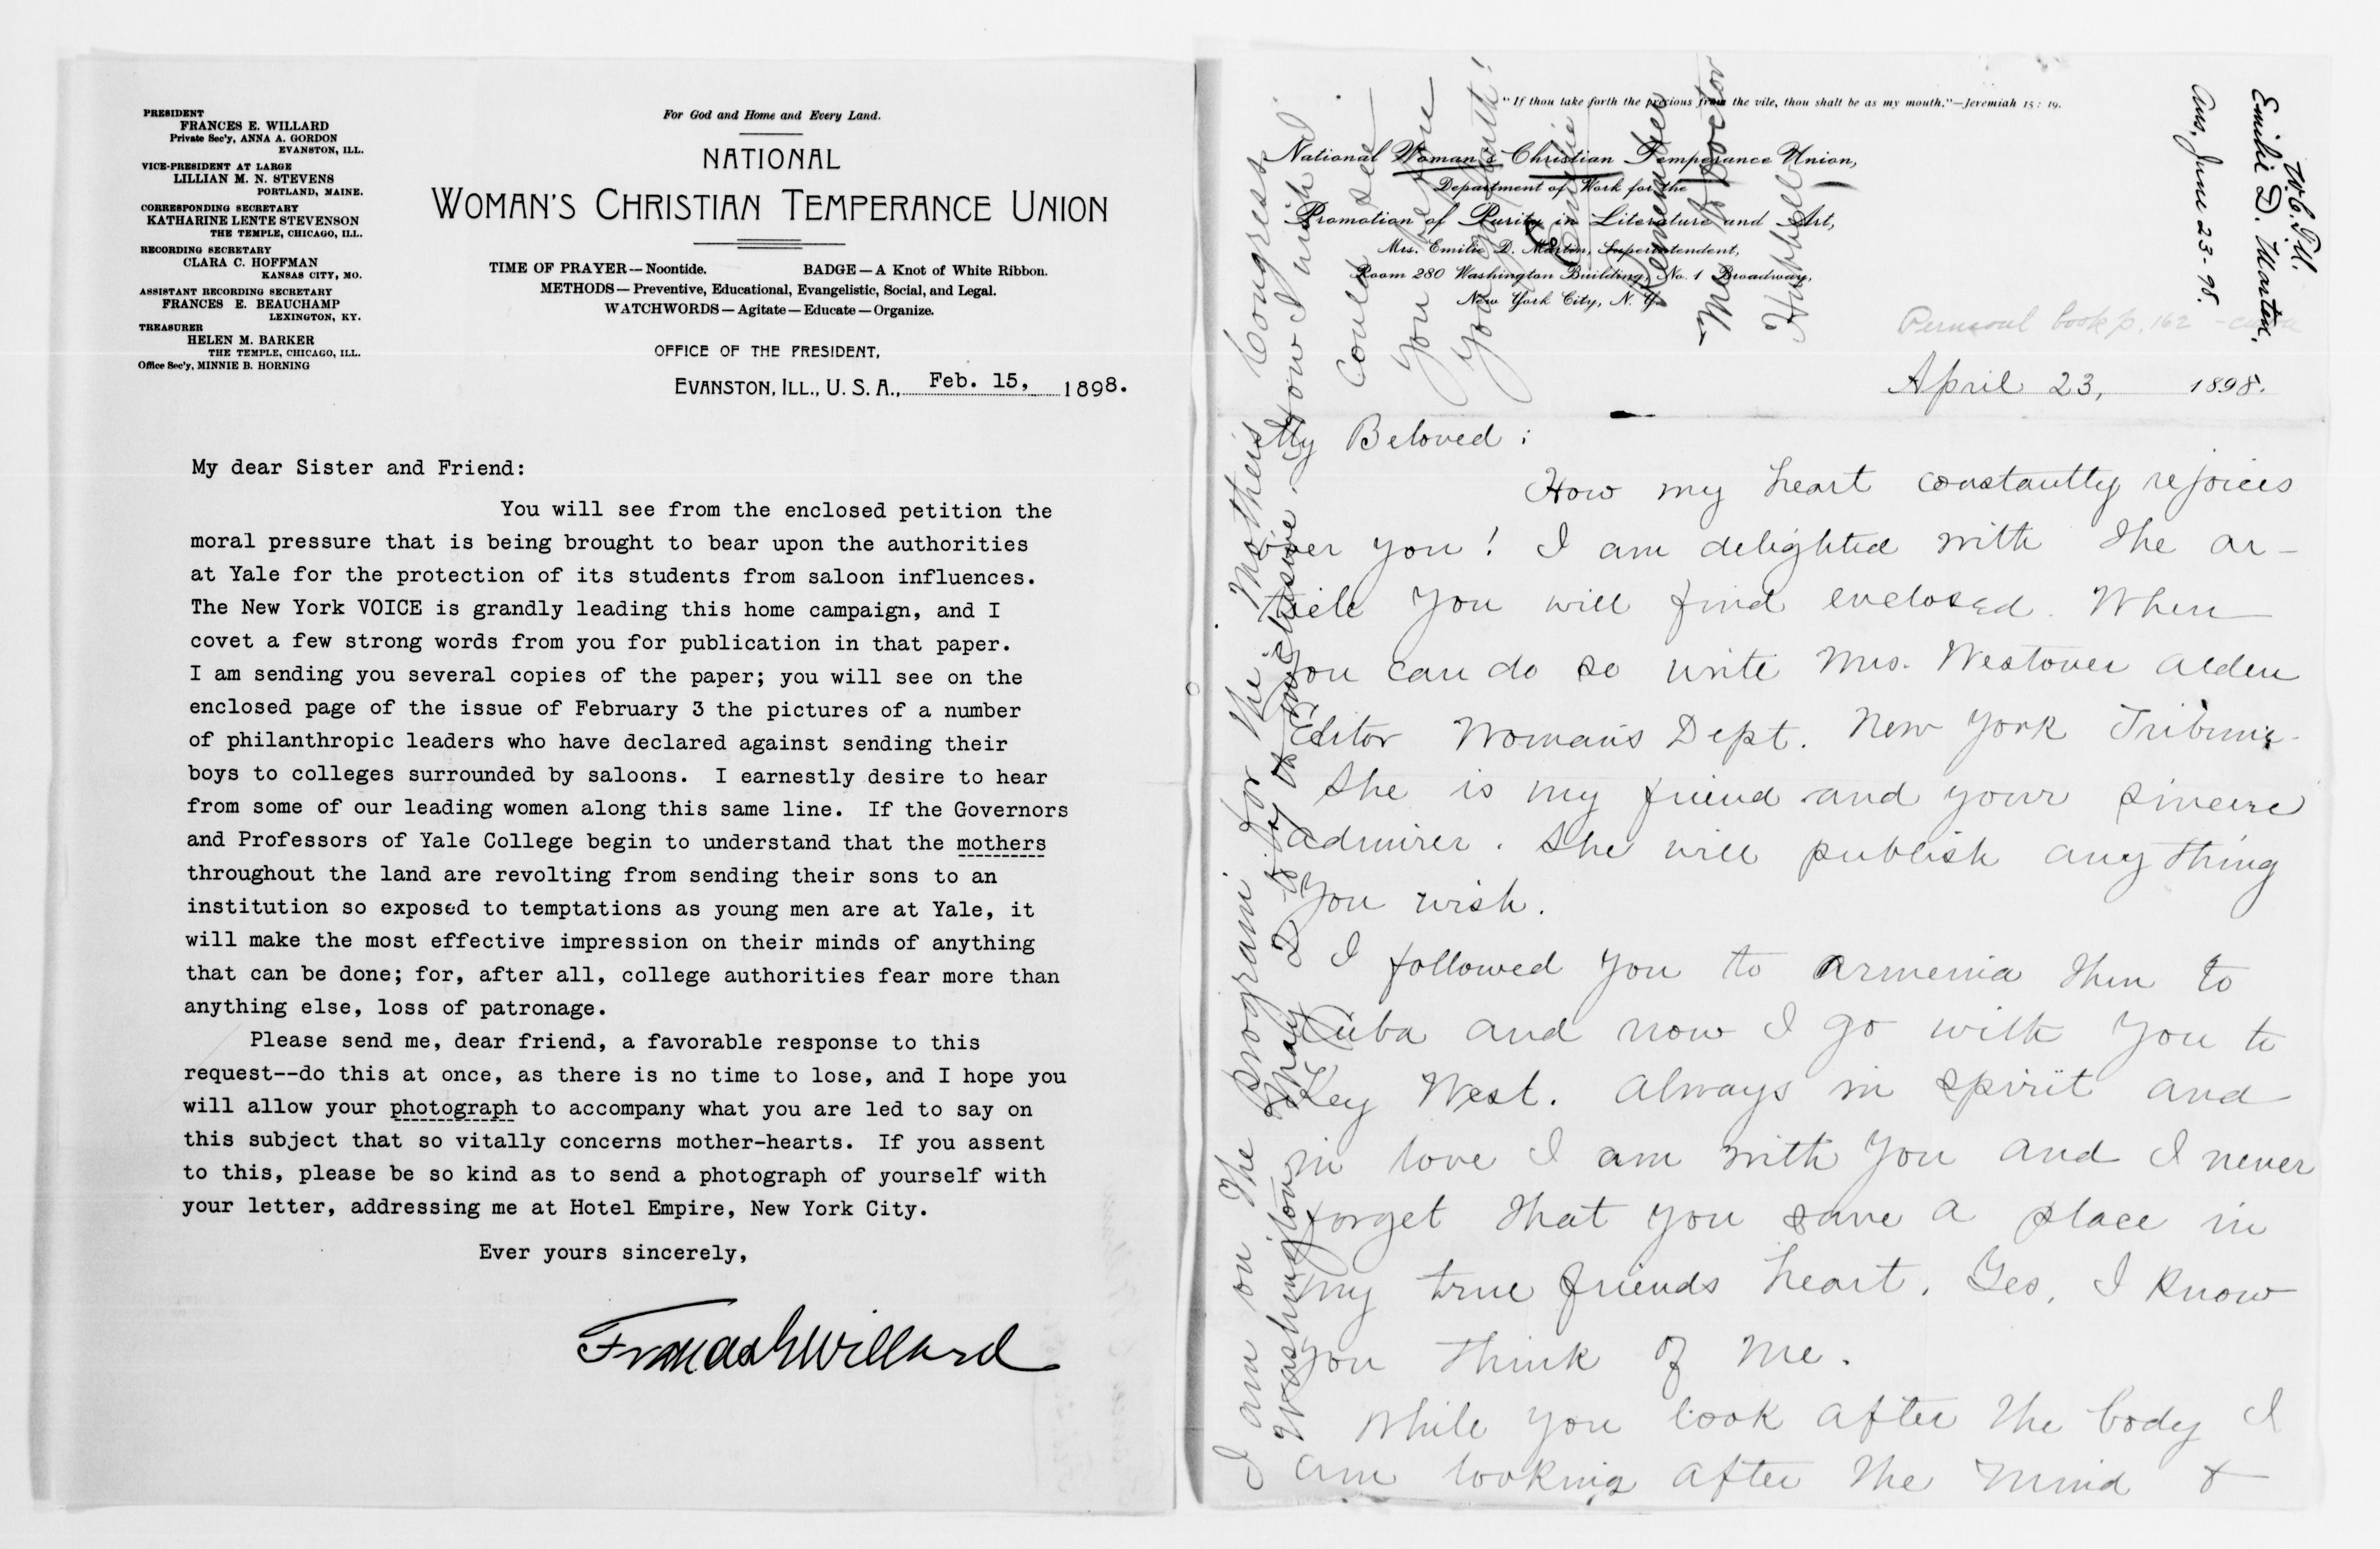 PRESIDENT
FRANCES E. WILLARD
Private Sec'y, ANNA A. GORDON
EVANSTON, ILL.
VICE-PRESIDENT AT LARGE
LILLIAN M. N. STEVENS
PORTLAND, MAINE.
CORRESPONDING SECRETARY
KATHARINE LENTE STEVENSON
THE TEMPLE, CHICAGO, ILL.
RECORDING SECRETARY
CLARA C. HOFFMAN
KANSAS CITY, MO.
ASSISTANT RECORDING SECRETARY
FRANCES E. BEAUCHAMP
LEXINGTON, KY.
TREASURER
HELEN M. BARKER
THE TEMPLE, CHICAGO, ILL.
Office Sec'y, MINNIE B. HORNING
For God and Home and Every Land.
NATIONAL
WOMAN'S CHRISTIAN TEMPERANCE UNION
TIME OF PRAYER—Noontide. BADGE—A Knot of White Ribbon.
METHODS—Preventive, Educational, Evangelistic, Social, and Legal.
WATCHWORDS—Agitate—Educate—Organize.
OFFICE OF THE PRESIDENT,
EVANSTON, ILL., U. S. A., Feb. 15, 1898.
My dear Sister and Friend:
You will see from the enclosed petition the
moral pressure that is being brought to bear upon the authorities
at Yale for the protection of its students from saloon influences.
The New York VOICE is grandly leading this home campaign, and I
covet a few strong words from you for publication in that paper.
I am sending you several copies of the paper; you will see on the
enclosed page of the issue of February 3 the pictures of a number
of philanthropic leaders who have declared against sending their
boys to colleges surrounded by saloons. I earnestly desire to hear
from some of our leading women along this same line. If the Governors
and Professors of Yale College begin to understand that the mothers
throughout the land are revolting from sending their sons to an
institution so exposed to temptations as young men are at Yale, it
will make the most effective impression on their minds of anything
that can be done; for, after all, college authorities fear more than
anything else, loss of patronage.
Please send me, dear friend, a favorable response to this
request--do this at once, as there is no time to lose, and I hope you
will allow your photograph to accompany what you are led to say on
this subject that so vitally concerns mother-hearts. If you assent
to this, please be so kind as to send a photograph of yourself with
your letter, addressing me at Hotel Empire, New York City.
Ever yours sincerely,
Frances E Willard
"If thou take forth the precious from the vile, thou shalt be as my mouth."—Jeremiah 15: 19.
National Woman's Christian Temperance Union,
Department of Work for the
Promotion of Purity in Literature and Art,
Mrs. Emilie D. Martin, Superintendent,
Room 280 Washington Building, No. 1 Broadway,
New York City, N. Y.
W.C.T.U.
Emilie D. Martin.
Ans, June 23-98.
book p. 162
April 23, 1898.
My Beloved:
How my heart constantly rejoices
over you! I am delighted with the ar-
ticle you will find enclosed. When
you can do so write Mrs. Westover Alden
Editor Woman's Dept. New York Tribune.
She is my friend and your sincere
admirer. She will publish any thing
you wish.
I followed you to Armenia then to
Cuba and now I go with you to
Key West. Always in spirit and
in love I am with you and I never
forget that you save a place in
my true friends heart. Yes, I know
you think of me.
While you look after the body I
am looking after the mind &
I am on the program for the Mother's Congress
Washington May 2 to 7 inclusive. How I wish I
could see
you before
you go
Emilie
Remember
me to Doctor
Hubbell